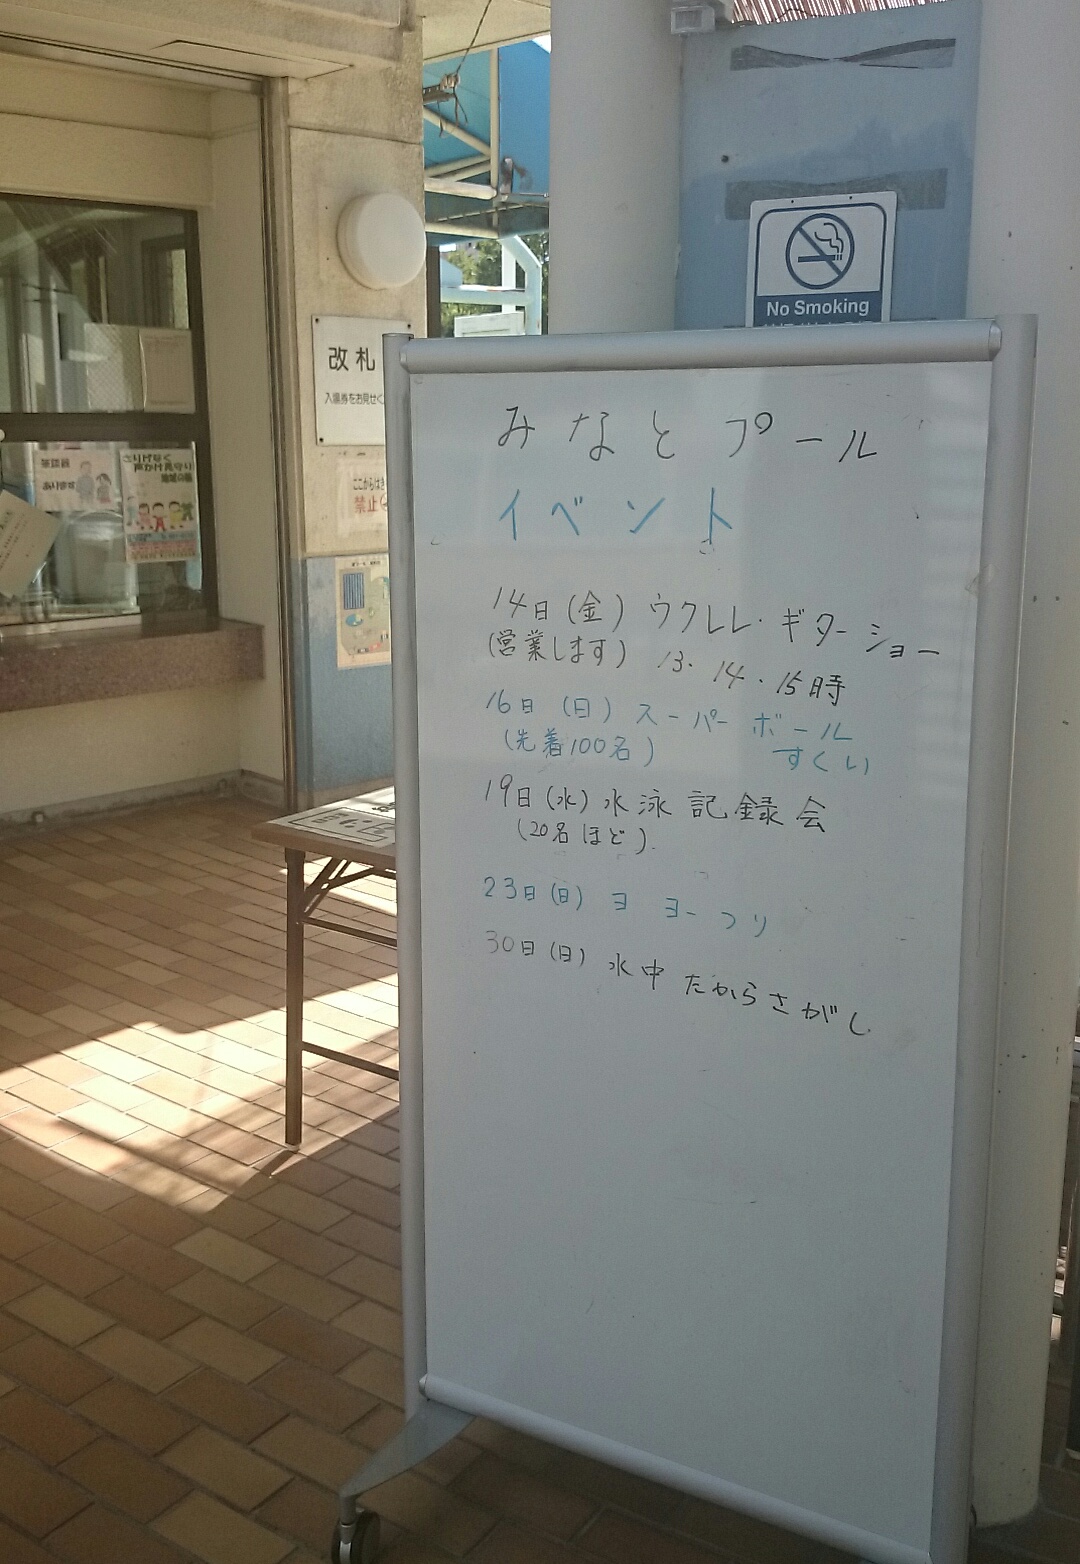 No Smoking
改札
入場券をお見せく
ここからはき
禁止
みなとプール
イベント
14日(金) ウクレレ・ギターショー
(営業します) 13・14・15時
16日(日) スーパーボール
(先着100名) すくい
19日(水) 水泳記録会
(20名ほど)
23日(日) ヨーヨーつり
30日(日) 水中たからさがし